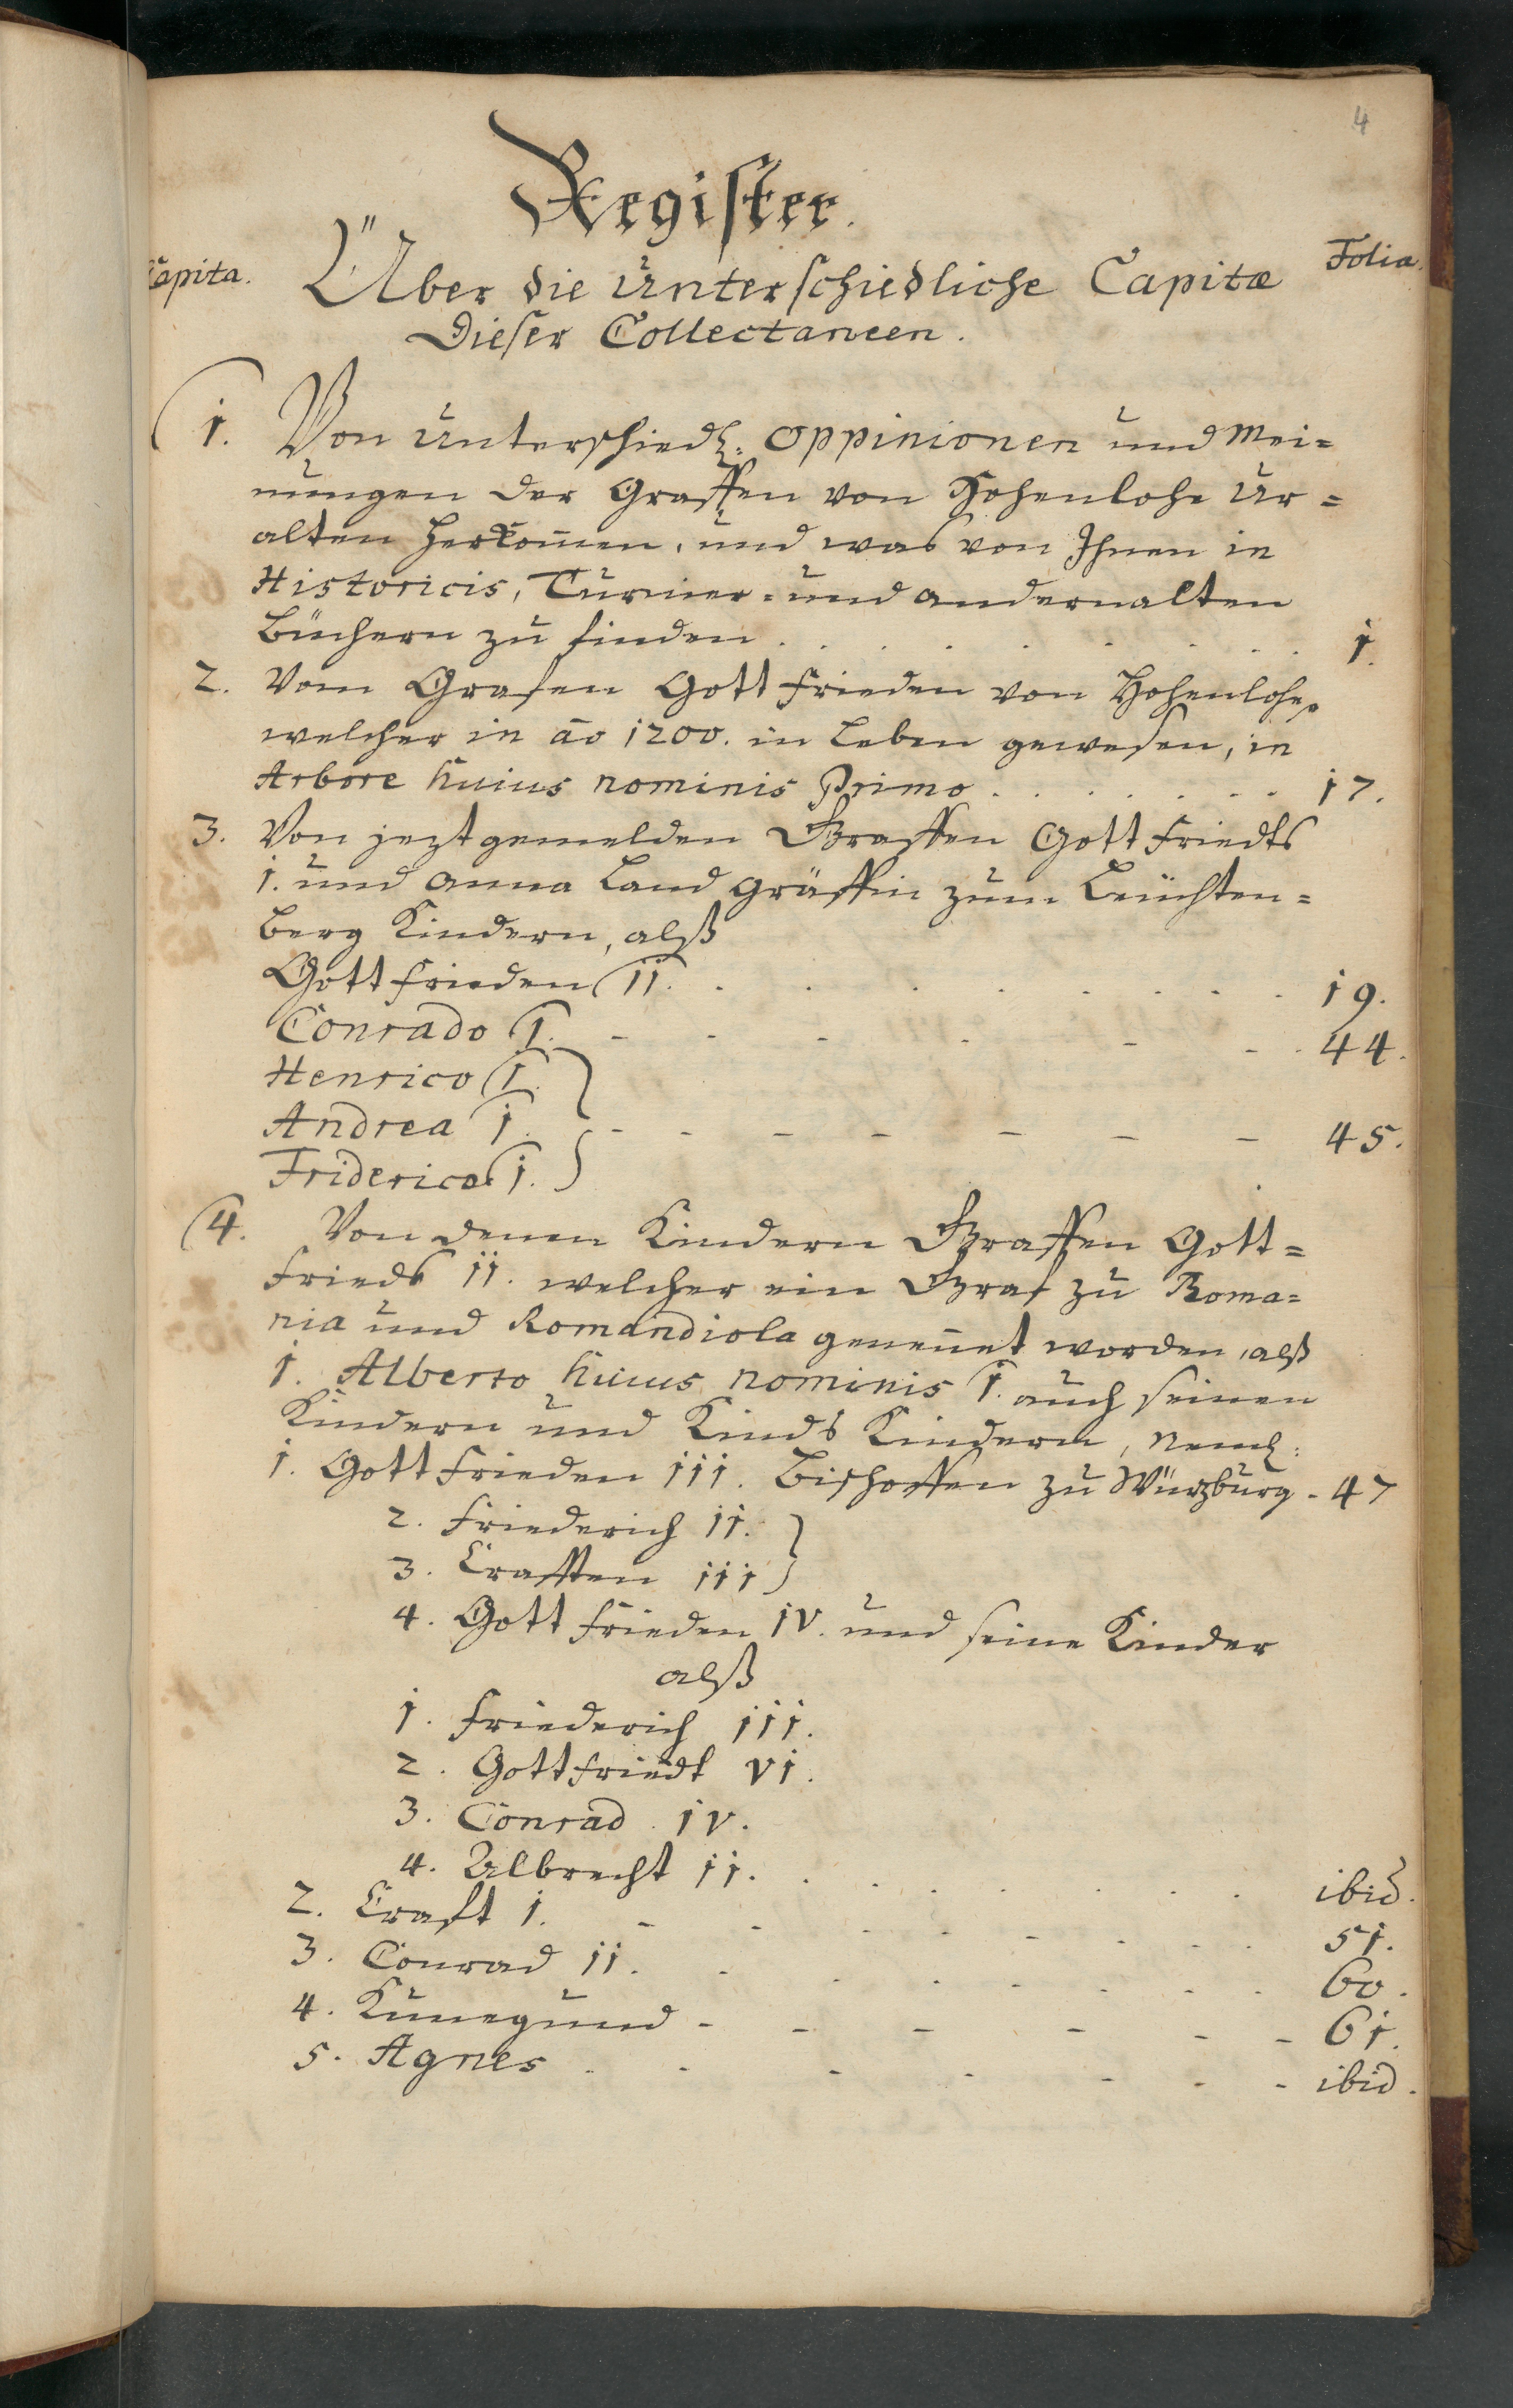 4
Register.
Capita.
Über die Unterschiedliche Capita
Folia.
Dieser Collectaneen.
1. Von unterschiedl: oppinionen und Mei=
nungen der Graffen von Hohenlohe Ur=
alten Herkom̄en, und was von Ihnen in
Historicis, Turnier= und andern alten
Büchern zu finden . . . . . . . . 1.
2. Vom Grafen Gottfrieden von Hohenlohe,
welcher in aō 1200. in Leben gewesen, in
Arbore huius nominis Primo . . . . . . . 17.
3. Von jezt gemelden Graffen Gottfriedts
1. und Anna Landgräffin zum Leüchten=
berg Kindern, alß
Gottfrieden II. . . . . . . . . 19.
Conrado I. - - - - - - 44.
Henrico I. }
Andrea I. - - - - - - - 45.
Friderico I. }
4. Von denen Kindern Graffen Gott=
frieds II. welcher ein Graf zu Roma=
nia und Romandiola genen̄et worden, alß
1. Alberto huius nominis I. auch seinen
Kindern und Kinds Kindern, Neml:
1. Gottfrieden III. Bischoffen zu Würzburg - 47
2. Friederich II. }
3. Crafften III }
4. Gottfrieden IV. und seine Kinder
alß
1. Friederich III.
2. Gottfriedt VI.
3. Conrad IV.
4. Albrecht II. . . . . . . . ibid.
2. Craft I. - - - - - - - 51.
3. Conrad II. . . . . . . . 60.
4. Kunegund - - - - - - 61.
5. Agnes . - - - - - - ibid.